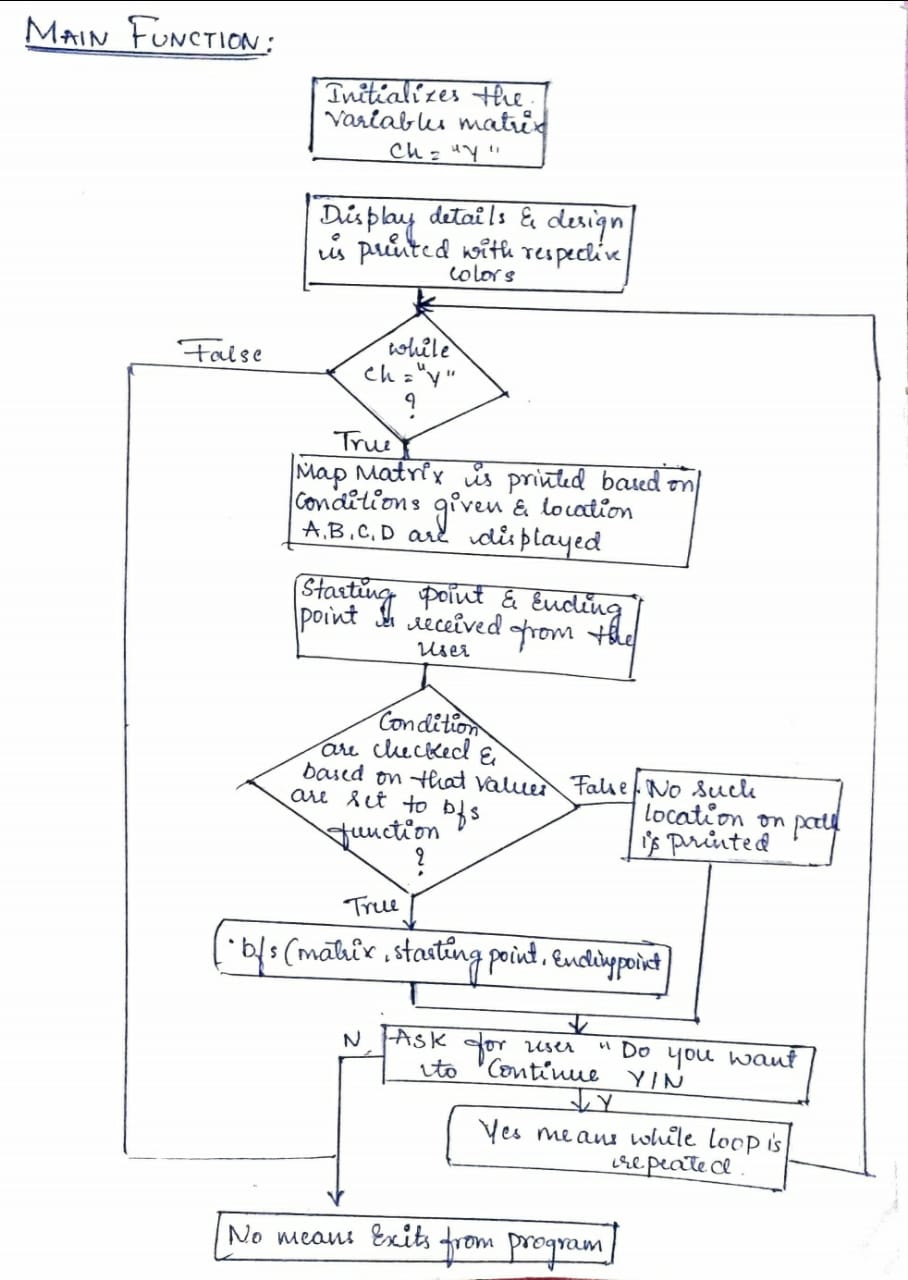 MAIN FUNCTION:
Initializes the
variables matrix
Ch = "Y"
Display details & design
is printed with respective
colors
False
while
Ch = "Y"
?
True
Map Matrix is printed based on
Conditions given & location
A,B,C,D are displayed
Starting point & Ending
point is received from the
User
Condition
are checked &
based on that values
are set to bfs
function
?
False
No such
location on path
is printed
True
bfs (matrix, starting point, Ending point
N
Ask for user "Do you want
to Continue Y/N
Y
Yes means while loop is
repeated.
No means Exits from program